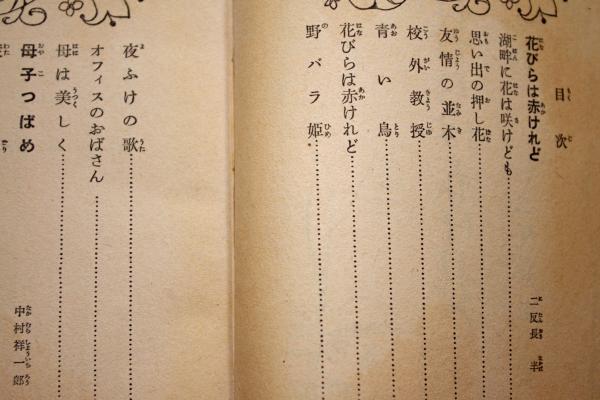 目次
花びらは赤けれど
二反長半
湖畔に花は咲けども
思い出の押し花
友情の並木
校外教授
青い鳥
花びらは赤けれど
野バラ姫
夜ふけの歌
オフィスのおばさん
母は美しく
母子つばめ
中村祥一郎